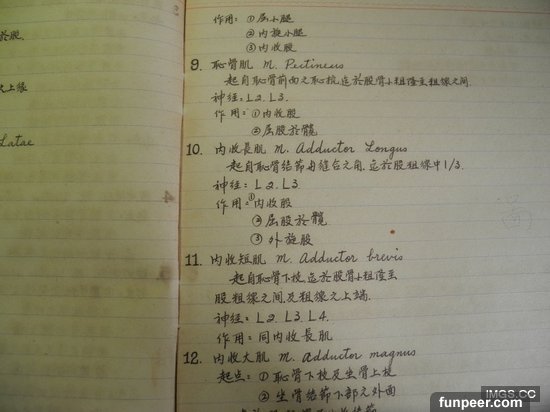 於股.
上緣
Latae
4
作用: ①屈小腿
②内旋小腿
③内收股
9. 恥骨肌 M. Pectineus
起自恥骨前面之恥梳,迄於股骨小粗隆至粗線之间.
神经: L2. L3.
作用: ①内收股
②屈股於髖
10. 内收長肌 M. Adductor Longus
起自恥骨结節与縫合之角,迄於股粗線中1/3.
神经: L2. L3
作用: ①内收股
②屈股於髖
③外旋股
11. 内收短肌 M. Adductor brevis
起自恥骨下枝,迄於股骨小粗隆至
股粗線之间及粗線之上端.
神经: L2. L3. L4.
作用: 同内收長肌
12. 内收大肌 M. Adductor magnus
起点: ①恥骨下枝及坐骨上枝
②坐骨结節下部之外面
IMGS.CC
funpeer.com